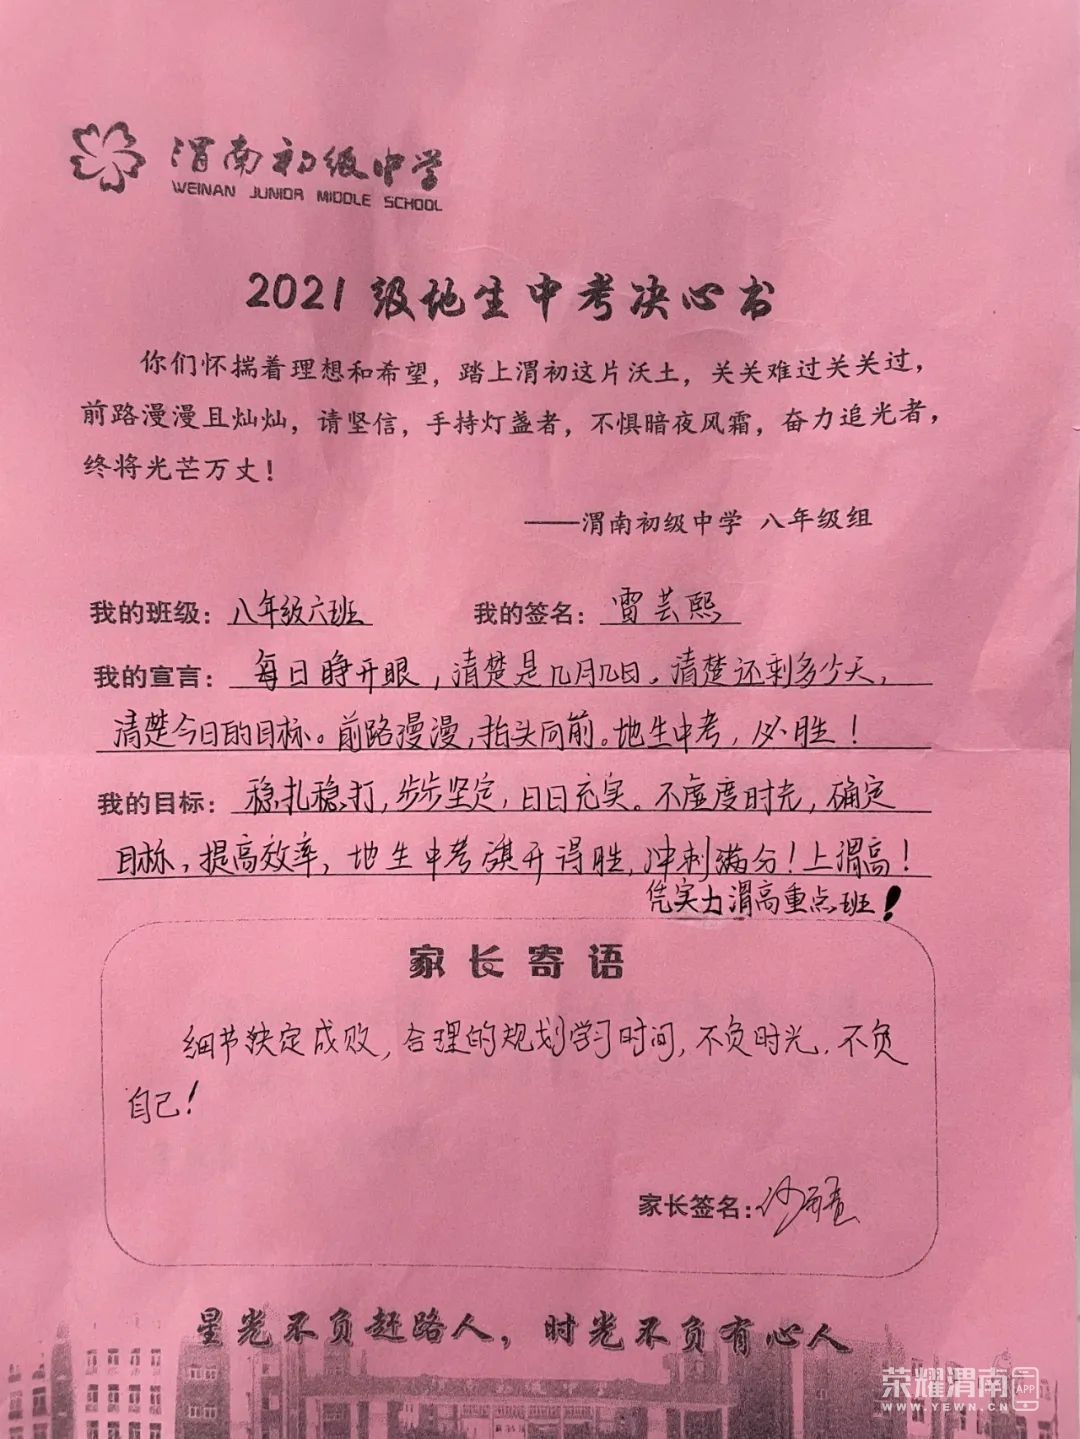 渭南初级中学
WEINAN JUNIOR MIDDLE SCHOOL
2021级地生中考决心书
你们怀揣着理想和希望，踏上渭初这片沃土，关关难过关关过，
前路漫漫且灿灿，请坚信，手持灯盏者，不惧暗夜风霜，奋力追光者，
终将光芒万丈！
——渭南初级中学 八年级组
我的班级：八年级六班 我的签名：雷芸熙
我的宣言：每日睁开眼，清楚是几月几日。清楚还剩多少天，
清楚今日的目标。前路漫漫，抬头向前。地生中考，必胜！
我的目标：稳扎稳打，步步坚定，日日充实。不虚度时光，确定
目标，提高效率，地生中考旗开得胜，冲刺满分！上渭高！
凭实力渭高重点班！
家长寄语
细节决定成败，合理的规划学习时间，不负时光，不负
自己！
家长签名：
星光不负赶路人，时光不负有心人
荣耀渭南 APP
WWW.YEWN.CN